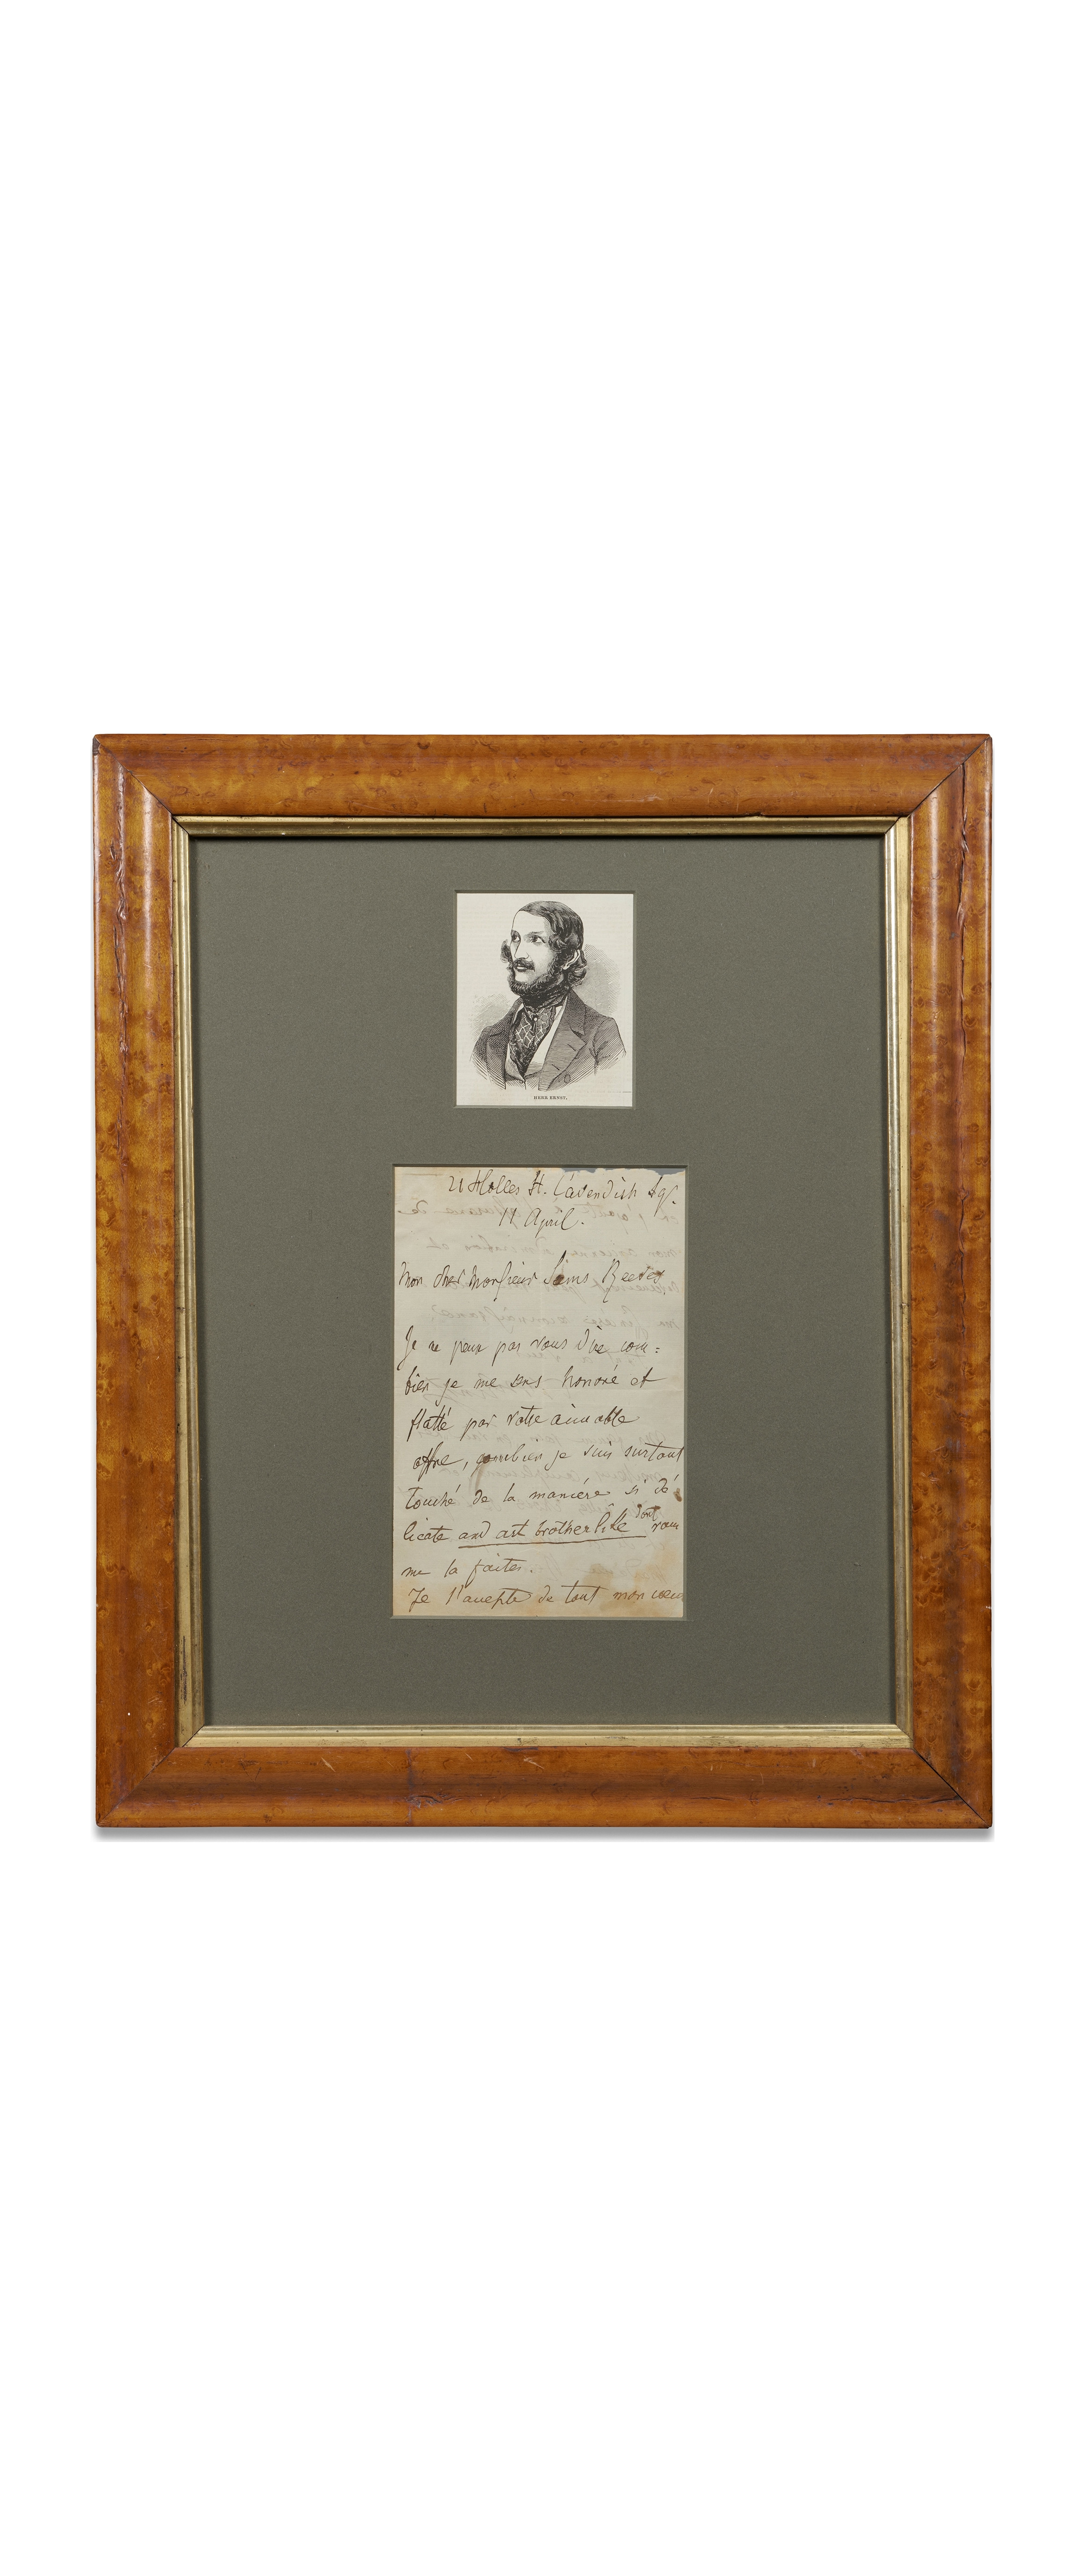 HERR ERNST.
21 Holles St. Cavendish Sqr.
11 April.
Mon cher Monsieur Sims Reeves
Je ne peux pas vous dire com=
bien je me sens honoré et
flatté par votre aimable
offre, combien je suis surtout
touché de la manière si dé
licate and art brotherlike dont vous
me la faites.
Je l'accepte de tout mon coeur